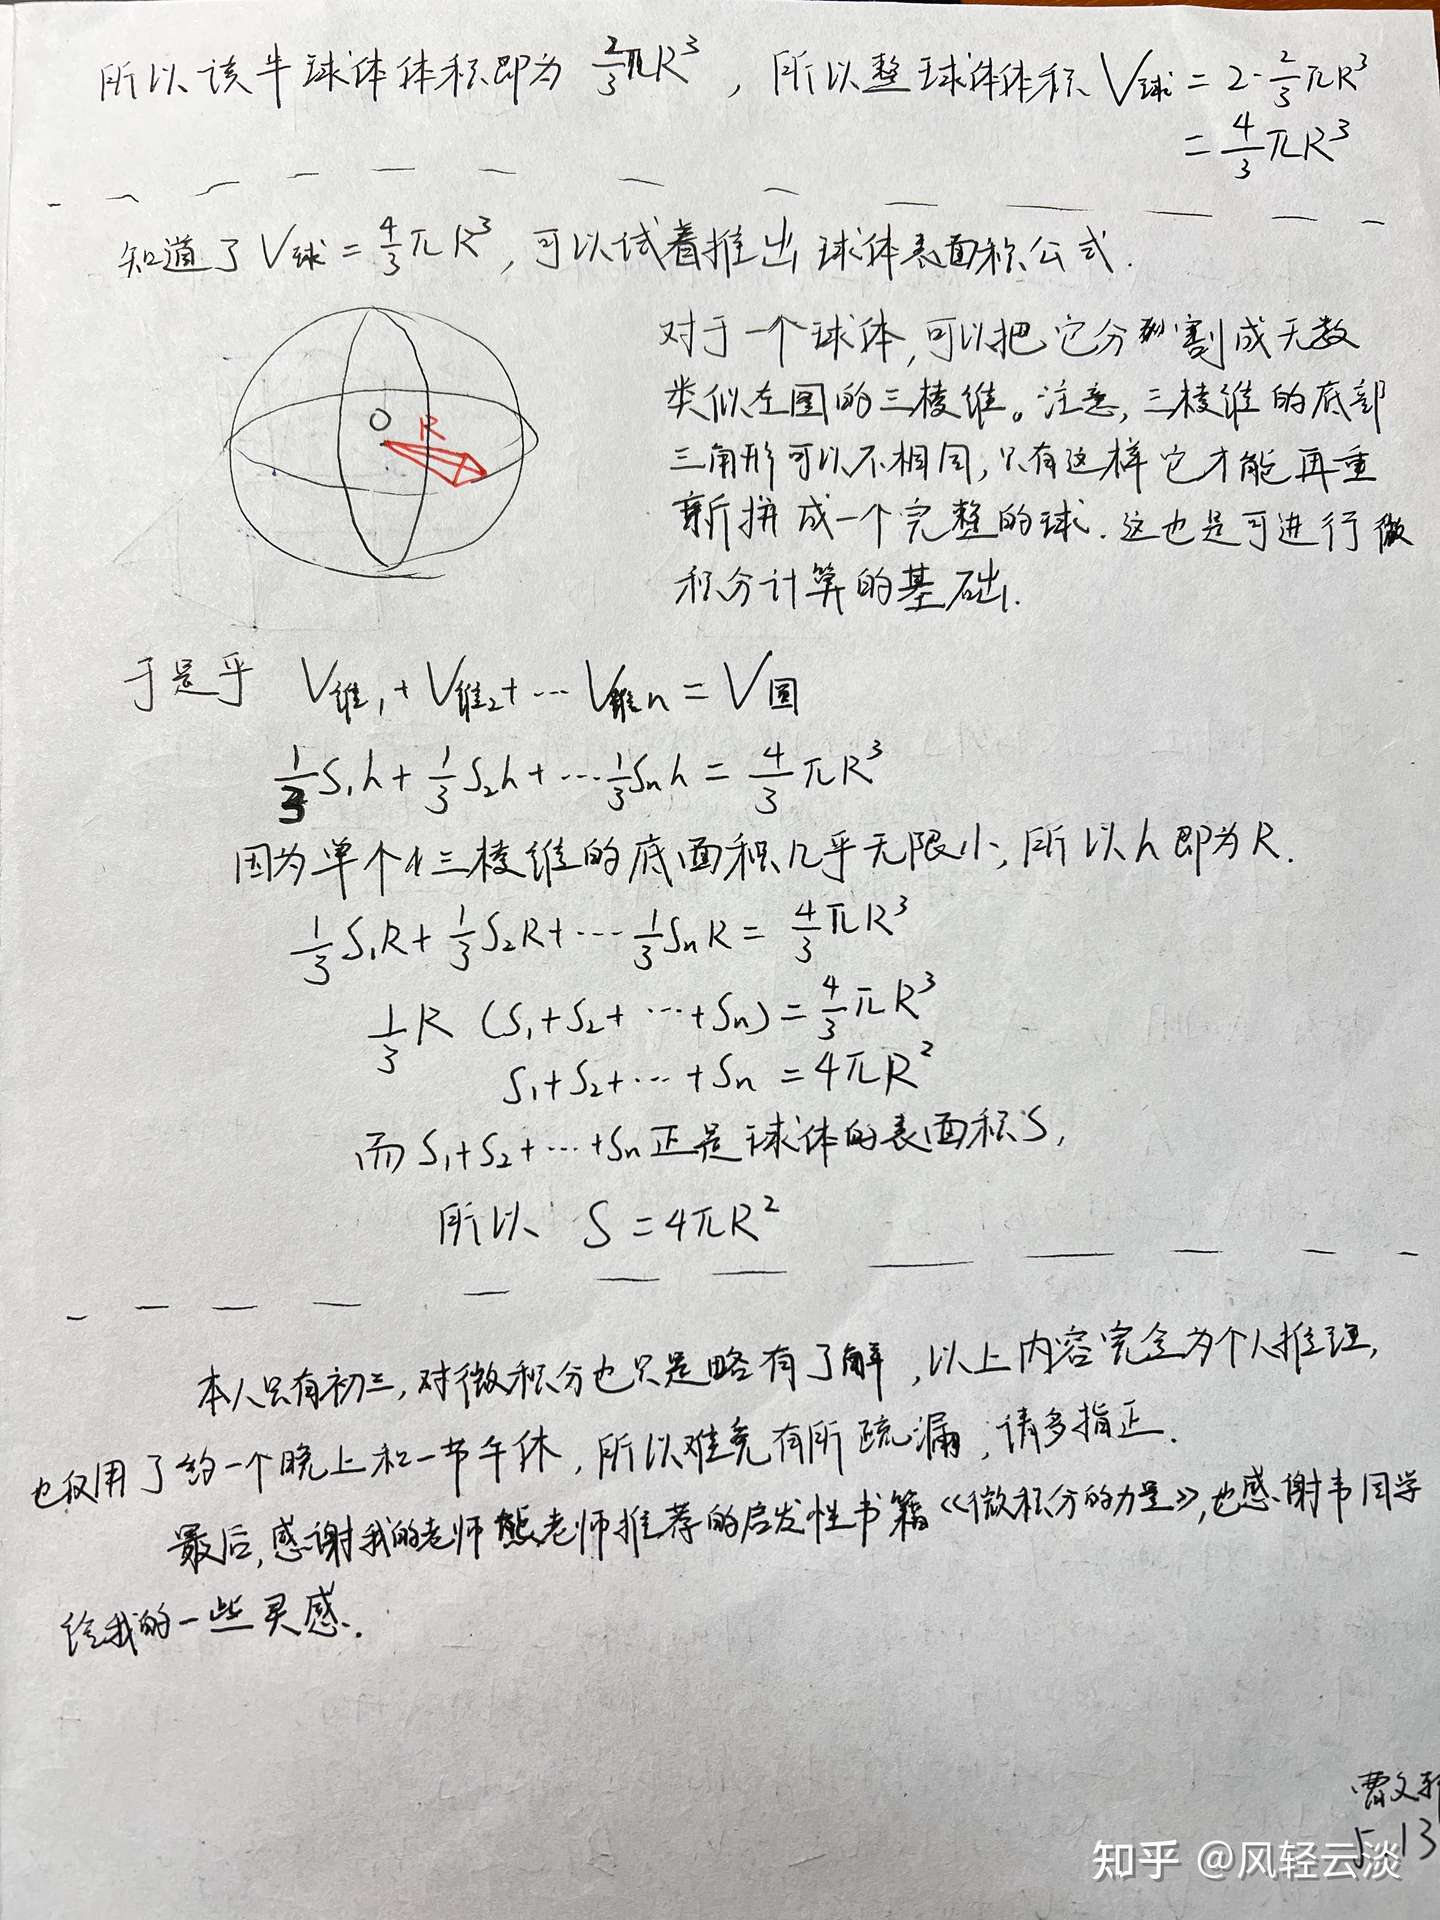 所以该半球体体积即为 2/3πR³，所以整球体体积 V球 = 2·2/3πR³
= 4/3πR³
知道了 V球 = 4/3πR³，可以试着推出球体表面积公式.
对于一个球体，可以把它分割成无数
O R
类似左图的三棱锥。注意，三棱锥的底部
三角形可以不相同，只有这样它才能再重
新拼成一个完整的球.这也是可进行微
积分计算的基础.
于是乎 V锥₁+V锥₂+…V锥n = V圆
1/3S₁h+1/3S₂h+…1/3Snh = 4/3πR³
因为单个小三棱锥的底面积几乎无限小，所以h即为R.
1/3S₁R+1/3S₂R+…1/3SnR = 4/3πR³
1/3R (S₁+S₂+…+Sn) = 4/3πR³
S₁+S₂+…+Sn = 4πR²
而S₁+S₂+…+Sn正是球体的表面积S，
所以 S = 4πR²
本人只有初三，对微积分也只是略有了解，以上内容完全为个人推理，
也仅用了约一个晚上和一节午休，所以难免有所疏漏，请多指正.
最后，感谢我的老师熊老师推荐的启发性书籍《微积分的力量》，也感谢韦同学
给我的一些灵感.
曹文轩
5.13
知乎 @风轻云淡